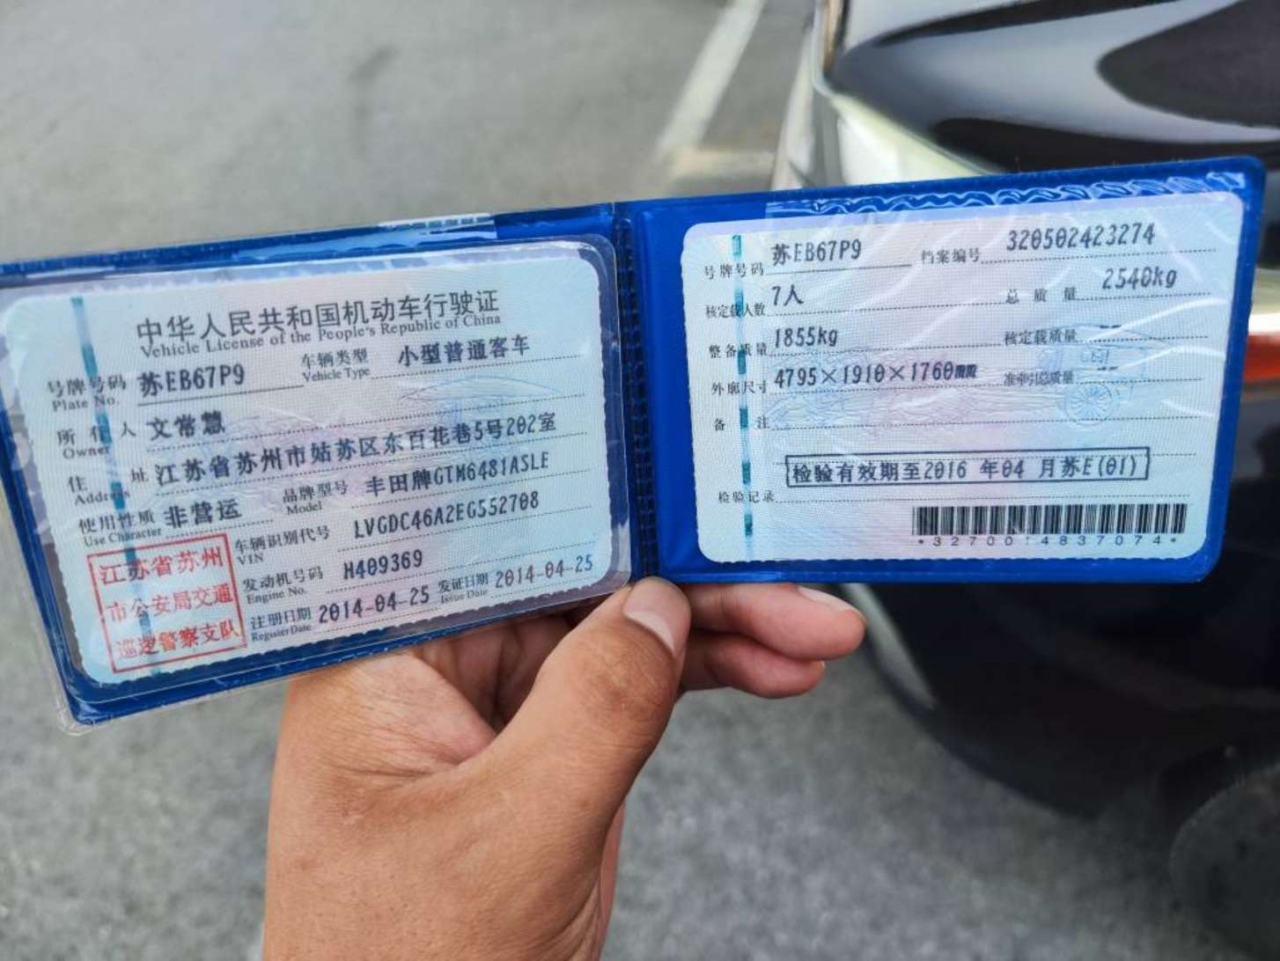 中华人民共和国机动车行驶证
Vehicle License of the People's Republic of China
号牌号码 苏EB67P9 车辆类型 小型普通客车
Plate No. Vehicle Type
所有人 文常慧
Owner
住址 江苏省苏州市姑苏区东百花巷5号202室
Address
使用性质 非营运 品牌型号 丰田牌GTM6481ASLE
Use Character Model
车辆识别代号 LVGDC46A2EG552708
VIN
发动机号码 H409369
Engine No.
注册日期 2014-04-25 发证日期 2014-04-25
Register Date Issue Date
江苏省苏州
市公安局交通
巡逻警察支队
号牌号码 苏EB67P9 档案编号 320502423274
核定载人数 7人 总质量 2540kg
整备质量 1855kg 核定载质量
外廓尺寸 4795×1910×1760 准牵引总质量
备注
检验有效期至2016 年04 月苏E(01)
检验记录
*3270014837074*